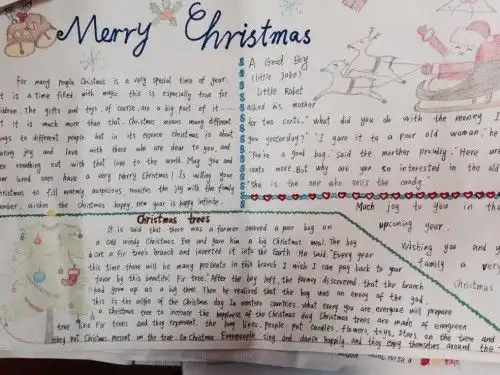 Merry Christmas
For many people Christmas is a very special time of year.
It is a time filled with magic this is especially true for
children. The gifts and toys of course are a big part of it......
it is much more than that. Christmas means many different
things to different people but in its essence Christmas is about
joy and love with those who are dear to you, and
reaching out with that love to the world. May you and
your loved ones have a very Merry Christmas! Is willing your
Christmas to fill warmly auspicious, reunites the joy with the family
wishes the Christmas happy, new year is happy infinite.
A Good Boy
(little joke)
Little Robet
asked his mother
for two cents. "what did you do with the money I
you yesterday?" "I gave it to a poor old woman," he
"You're a good boy," said the morther proudly. "Here are
cents more. But why are you so interested in the old
"She is the one who sells the candy.
Much joy to you in the
upcoming year.
Wishing you and y
family a ver
Christmas
Christmas trees
It is said that there was a farmer served a poor boy on
a cold windy Christmas Eve and gave him a big Christmas meal. The boy
cut a Fir tree's branch and inserted it into the Earth He said "Every year
this time there will be many presents in this branch I wish I can pay back to your
favor by this beautiful Fir tree." After the boy left, the farmer discovered that the branch
had grow up as a big tree. Then he realized that the boy was an envoy of the god.
This is the origin of the Christmas day. In western countries, what every you are everyone will prepare
a christmas tree to increase the happiness of the Christmas day Christmas trees are made of evergreen
tree like Fir trees and they represent the long lives. People put candles, flowers, toys, stars on the tree and
they put Christmas Present on the tree. On Christmas Eve people sing and danse happily and they enjoy themselves around the